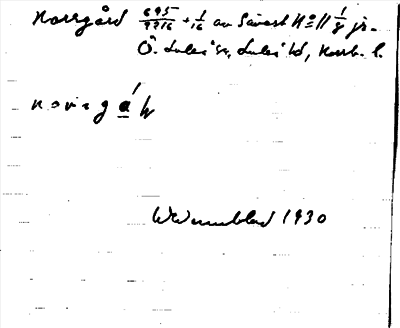 Norrgård 695/9216 + 1/16 av Sävast No 11 1/8 jr.
Ö. Luleå sn, Luleå td, Norrb. l.
nɔrɩgɑ́ɖ
W Wennblad 1930